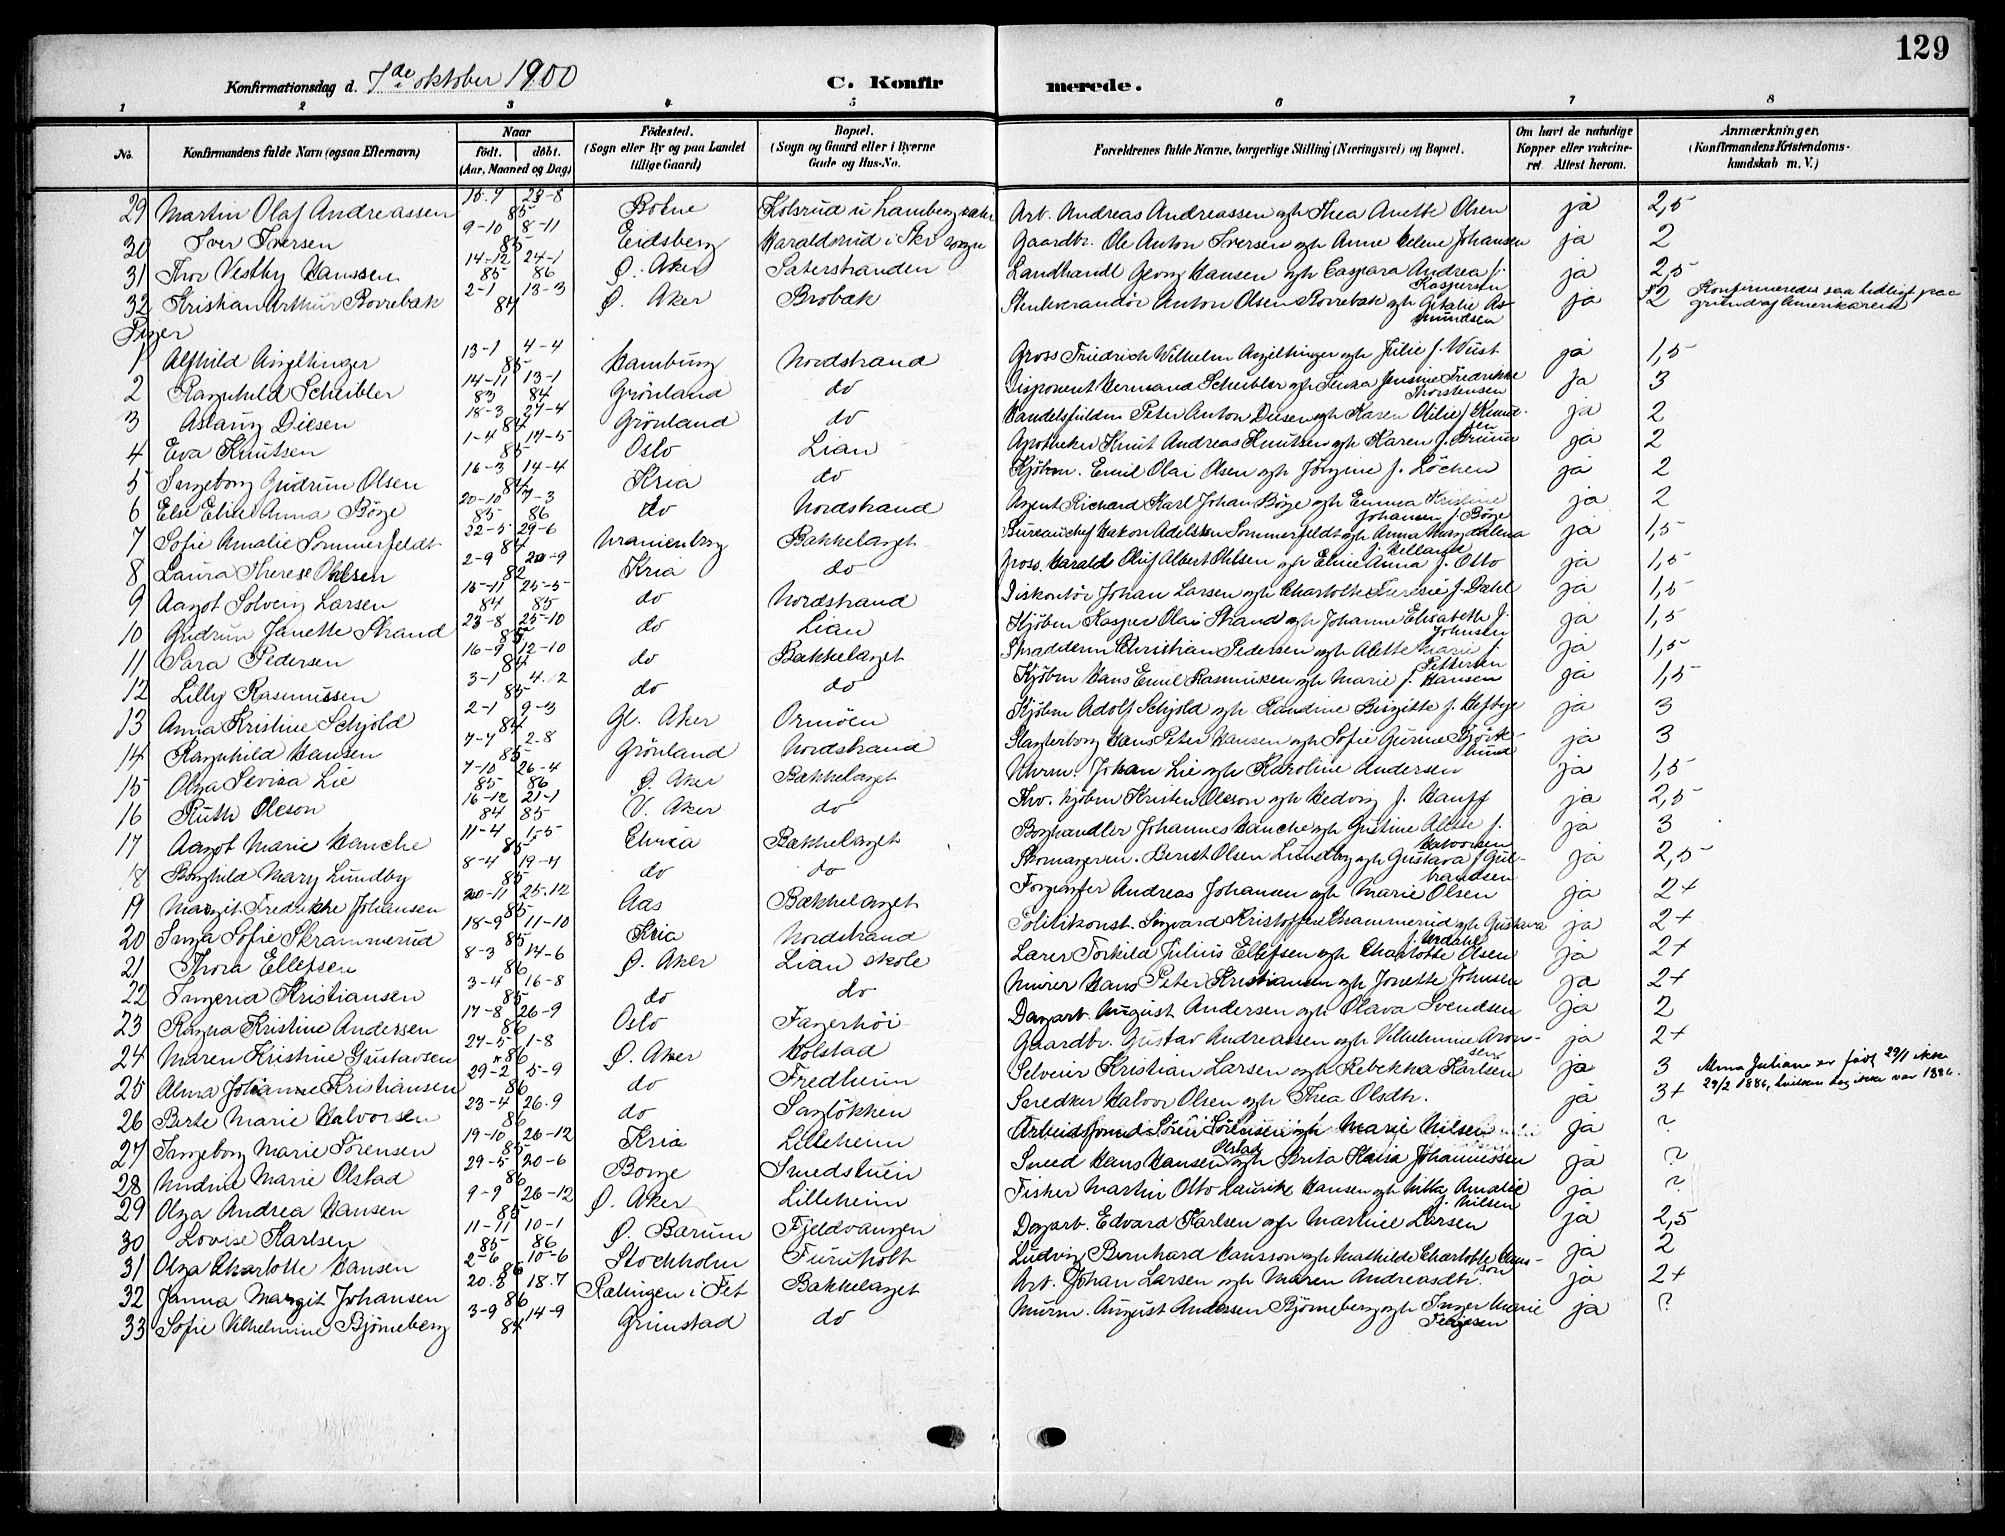 129
Konfirmationsdag d. 7de oktober 1900 C. Konfirmerede.
1 2 3 4 5 6 7 8
No. Konfirmandens fulde Navn (ogsaa Efternavn) Naar født. døbt. (Aar, Maaned og Dag) Fødested. (Sogn eller By og paa Landet tillige Gaard) Bopæl. (Sogn og Gaard eller i Byerne Gade og Hus-No. Forældrenes fulde Navne, borgerlige Stilling (Næringsvei) og Bopæl. Om havt de naturlige Kopper eller vakcineret Attest herom. Anmærkninger, (Konfirmandens Kristendomskundskab m. V.)
29 Martin Olaf Andreassen 15-9 23-8 85 Botne Kolsrud u Lamberg sæter Arb. Andreas Andreassen ogh Thea Anette Olsen ja 2,5
30 Iver Iversen 9-10 8-11 85 Eidsberg Haraldsrud i Skr. sogn Gaardbr. Ole Anton Iversen ogh Anne Helene Johansen ja 2
31 Thor Vestby Hanssen 14-12 85 24-1 86 Ø. Aker Sæterstranden Landhandl Georg Hansen ogh Caspara Andrea f. Kaspersen ja 2,5
32 Kristian Arthur Rovrebak 2-1 13-3 84 Ø. Aker Brobæk Stenleverandør Anton Olsen Rovrebak ogh Gitalie Asmundsen ja 2 Konfirmeredes saa tidligt paa grund af Amerikareise
Piger
1 Alfhild Angeltinger 13-1 4-4 85 Hamburg Nordstrand Gross Friedrich Wilhelm Angeltinger ogh Julie f. Wüst ja 1,5
2 Ragnhild Scheibler 14-11 83 13-1 84 Grønland do Disponent Hermand Scheibler ogh Jensine Fredrikke Thorstensen ja 3
3 Aslaug Diesen 18-3 27-4 84 Grønland do Handelsfuldm Peter Anton Diesen ogh Karen Otilie f Knudsen ja 2
4 Eva Knutsen 1-4 17-5 85 Oslo Lian Apotheker Knut Andreas Knutsen ogh Karen f. Bruun ja 2
5 Ingeborg Gudrun Olsen 16-3 14-4 84 Kria do Kjøbm. Emil Olai Olsen ogh Jørgine f. Löchen ja 2
6 Else Elise Anna Böge 20-10 85 7-3 86 do Nordstrand Agent Richard Karl Johan Böge ogh Emma Kristine Johansen f. Böge ja 2
7 Sofie Amalie Sommerfeldt 22-5 29-6 84 Uranienborg Bækkelaget Bureauchef Hakon Adelsten Sommerfeldt ogh Anna Magdalena f. Kielland ja 1,5
8 Laura Therese Ohlsen 2-9 20-9 82 Kria do Gross. Harald Oluf Albert Ohlsen ogh Eline Anna f. Otto ja 1,5
9 Aagot Solveig Larsen 15-11 84 25-5 85 do Nordstrand Diskontör Johan Larsen ogh Charlotte Theresie f. Dahl ja 1,5
10 Gudrun Janette Strand 23-8 25-10 85 do Lian Kjöbm Kasper Olai Strand ogh Johanne Elisabeth f. Johnsen ja 1,5
11 Sara Pedersen 16-9 12-10 84 do Bækkelaget Skrædderm Christian Pedersen ogh Alette Marie f. Pettersen ja 1,5
12 Lilly Rasmussen 3-1 4.12 85 do do Kjöbm Hans Emil Rasmussen ogh Marie f. Hansen ja 1,5
13 Anna Kristine Schjold 2-1 9-3 84 Gl. Aker Ormöen Kjöbm Adolf Schjold ogh Randine Birgitte f. Heftye ja 3
14 Ragnhild Hansen 7-7 2-8 85 Grönland Nordstrand Slagterborg Hans Peter Hansen ogh Sofie Gurine Björklund ja 3
15 Olga Sevira Lie 7-10 85 26-4 86 Ø. Aker Bækkelaget Uhrm. Johan Lie ogh Karoline Andersen ja 1,5
16 Ruth Oleson 16-12 84 21-1 85 V. Aker do Thv. kjöbm Kristen Oleson ogh Hedvig f. Hauff ja 2,5
17 Aagot Marie Hanche 11-4 1-5 85 Elvria Bækkelaget Boghandler Johannes Hanche ogh Gustine Alette f. Halvorsen ja 3
18 Borghild Mary Lundby 8-4 19-4 85 do do Skomagerm. Bernt Olsen Lundby ogh Gustava f Gulbrandsen ja 2,5
19 Margit Fredrikke Johansen 20-11 25.12 85 Aas Bækkelaget Forgænger Andreas Johansen ogh Marie Olsen ja 2+
20 Inga Sofie Skrammerud 18-9 11-10 85 Kria Nordstrand Politikonst. Sigvard Kristoffer Skrammerud ogh Gustava f. Urdahl ja 2+
21 Thora Ellefsen 8-3 14-6 86 Ø. Aker Lian skole Lærer Torkild Julius Ellefsen ogh Charlotte Olsen ja 2+
22 Ingeria Kristiansen 3-4 16-8 85 do do Murer Hans Peter Kristiansen ogh Jonette Johnsen ja 2+
23 Ragna Kristine Andersen 17-8 26-9 86 Oslo Fagerhöi Dagarb. August Andersen ogh Olava Svendsen ja 2
24 Maren Kristine Gustavsen 27-5 1-8 86 Ø. Aker Holstad Gaardbr. Gustav Andreassen ogh Vilhelmine Aronsen ja 2+
25 Alma Johanne Kristiansen 29-2 5-9 86 do Fredheim Selveier Kristian Larsen ogh Rebekka Karlsen ja 3 Alma Juliane er född 29/1 ikke 29/2 1886, hvilken dag ikke var 1886.
26 Berte Marie Halvorsen 23-4 26.9 86 do Saglökken Snedker Halvor Olsen ogh Thea Olsdtr. ja 3+
27 Ingeborg Marie Sörensen 19-10 26-12 85 Kria Lilleheim Arbeidsformd Sören Sörensen ogh Marie Nilsen ja ?
28 Andrine Marie Olstad 29-5 20-6 86 Borge Smedstuen Smed Hans Hansen Olstad ogh Brita Maria Johannessen ja ?
29 Olga Andrea Hansen 9-9 26-12 85 Ø. Aker Lilleheim Fisker Martin Otto Laurike Hansen ogh Milla Amalie f. Nilsen ja ?
30 Lovise Karlsen 11-11 85 10-1 86 Ø. Bærum Fjeldvangen Dagarb. Edvard Karlsen ogh Martine Larsen ja 2,5
31 Olga Charlotte Hansen 2-6 10-6 86 Stockholm Furuholt Ludvig Bernhard Hansson ogh Mathilde Charlotte Hansson ja 2
32 Janna Margit Johansen 20.3 18.7 86 Rælingen i Fet Bækkelaget Arb. Johan Larsen ogh Maren Andreasdtr. ja 2+
33 Sofie Vilhelmine Bjørneberg 3-9 14-9 84 Grimstad do Murm. August Andersen Bjørneberg ogh Inger Marie Terjesen ja ?